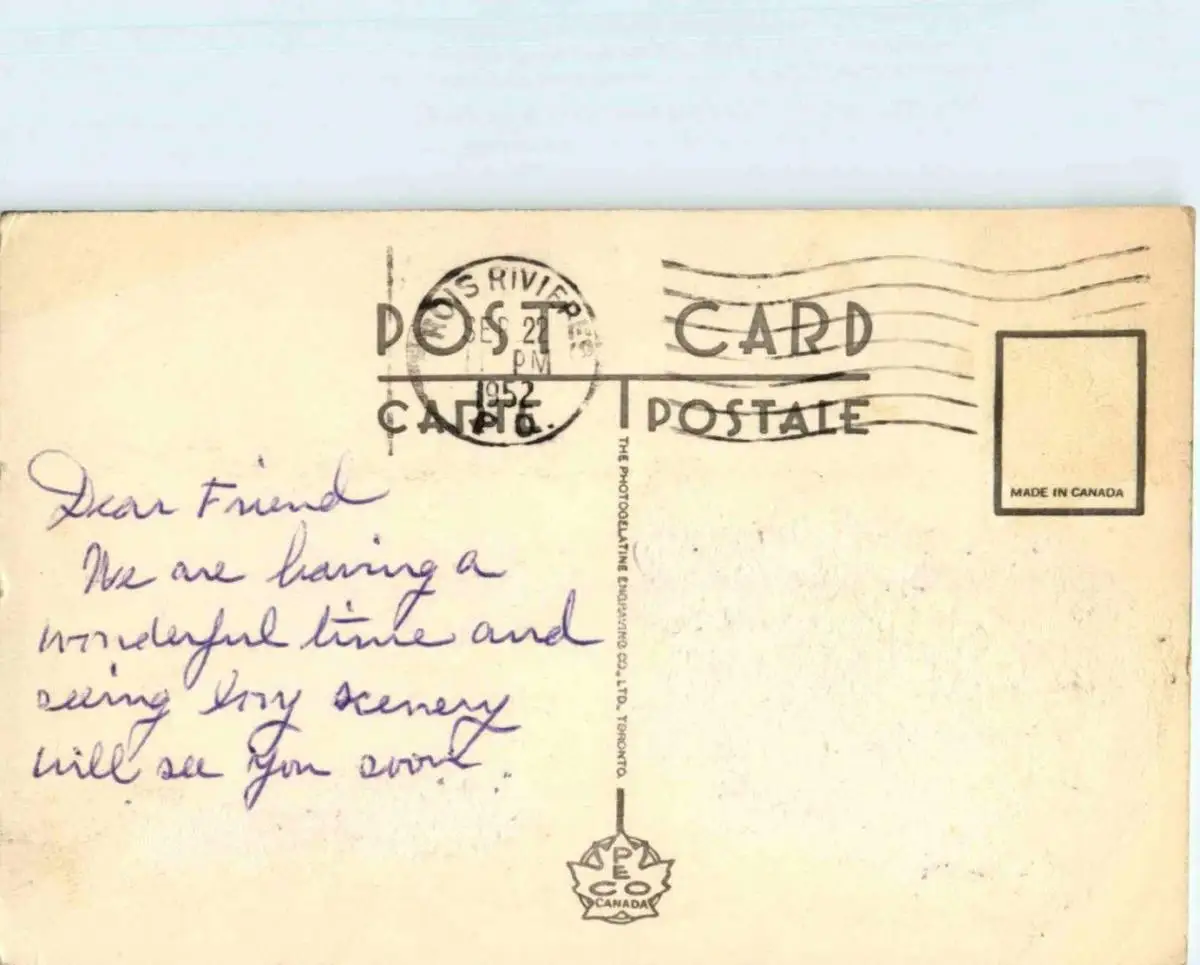 ROIS RIVIERES
SEP 22
PM
1952
P.Q.
POST CARD
CARTE POSTALE
MADE IN CANADA
Dear Friend
We are having a
wonderful time and
seeing scenery
will see you soon
THE PHOTOGELATINE ENGRAVING CO., LTD., TORONTO.
PECO
CANADA